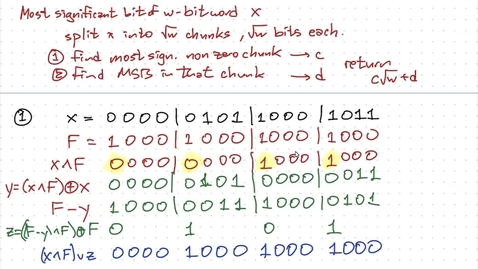 Most significant bit of w-bit word x
split x into √w chunks, √w bits each.
① find most sign. non zero chunk → c
② find MSB in that chunk → d
return
c√w+d
① x = 0000|0101|1000|1011
F = 1000|1000|1000|1000
x∧F 0000|0000|1000|1000
y=(x∧F)⊕x 0000|0101|0000|0011
F-y 1000|0011|1000|0101
z=((F-y)∧F)⊕F 0 1 0 1
(x∧F)∨z 0000 1000 1000 1000